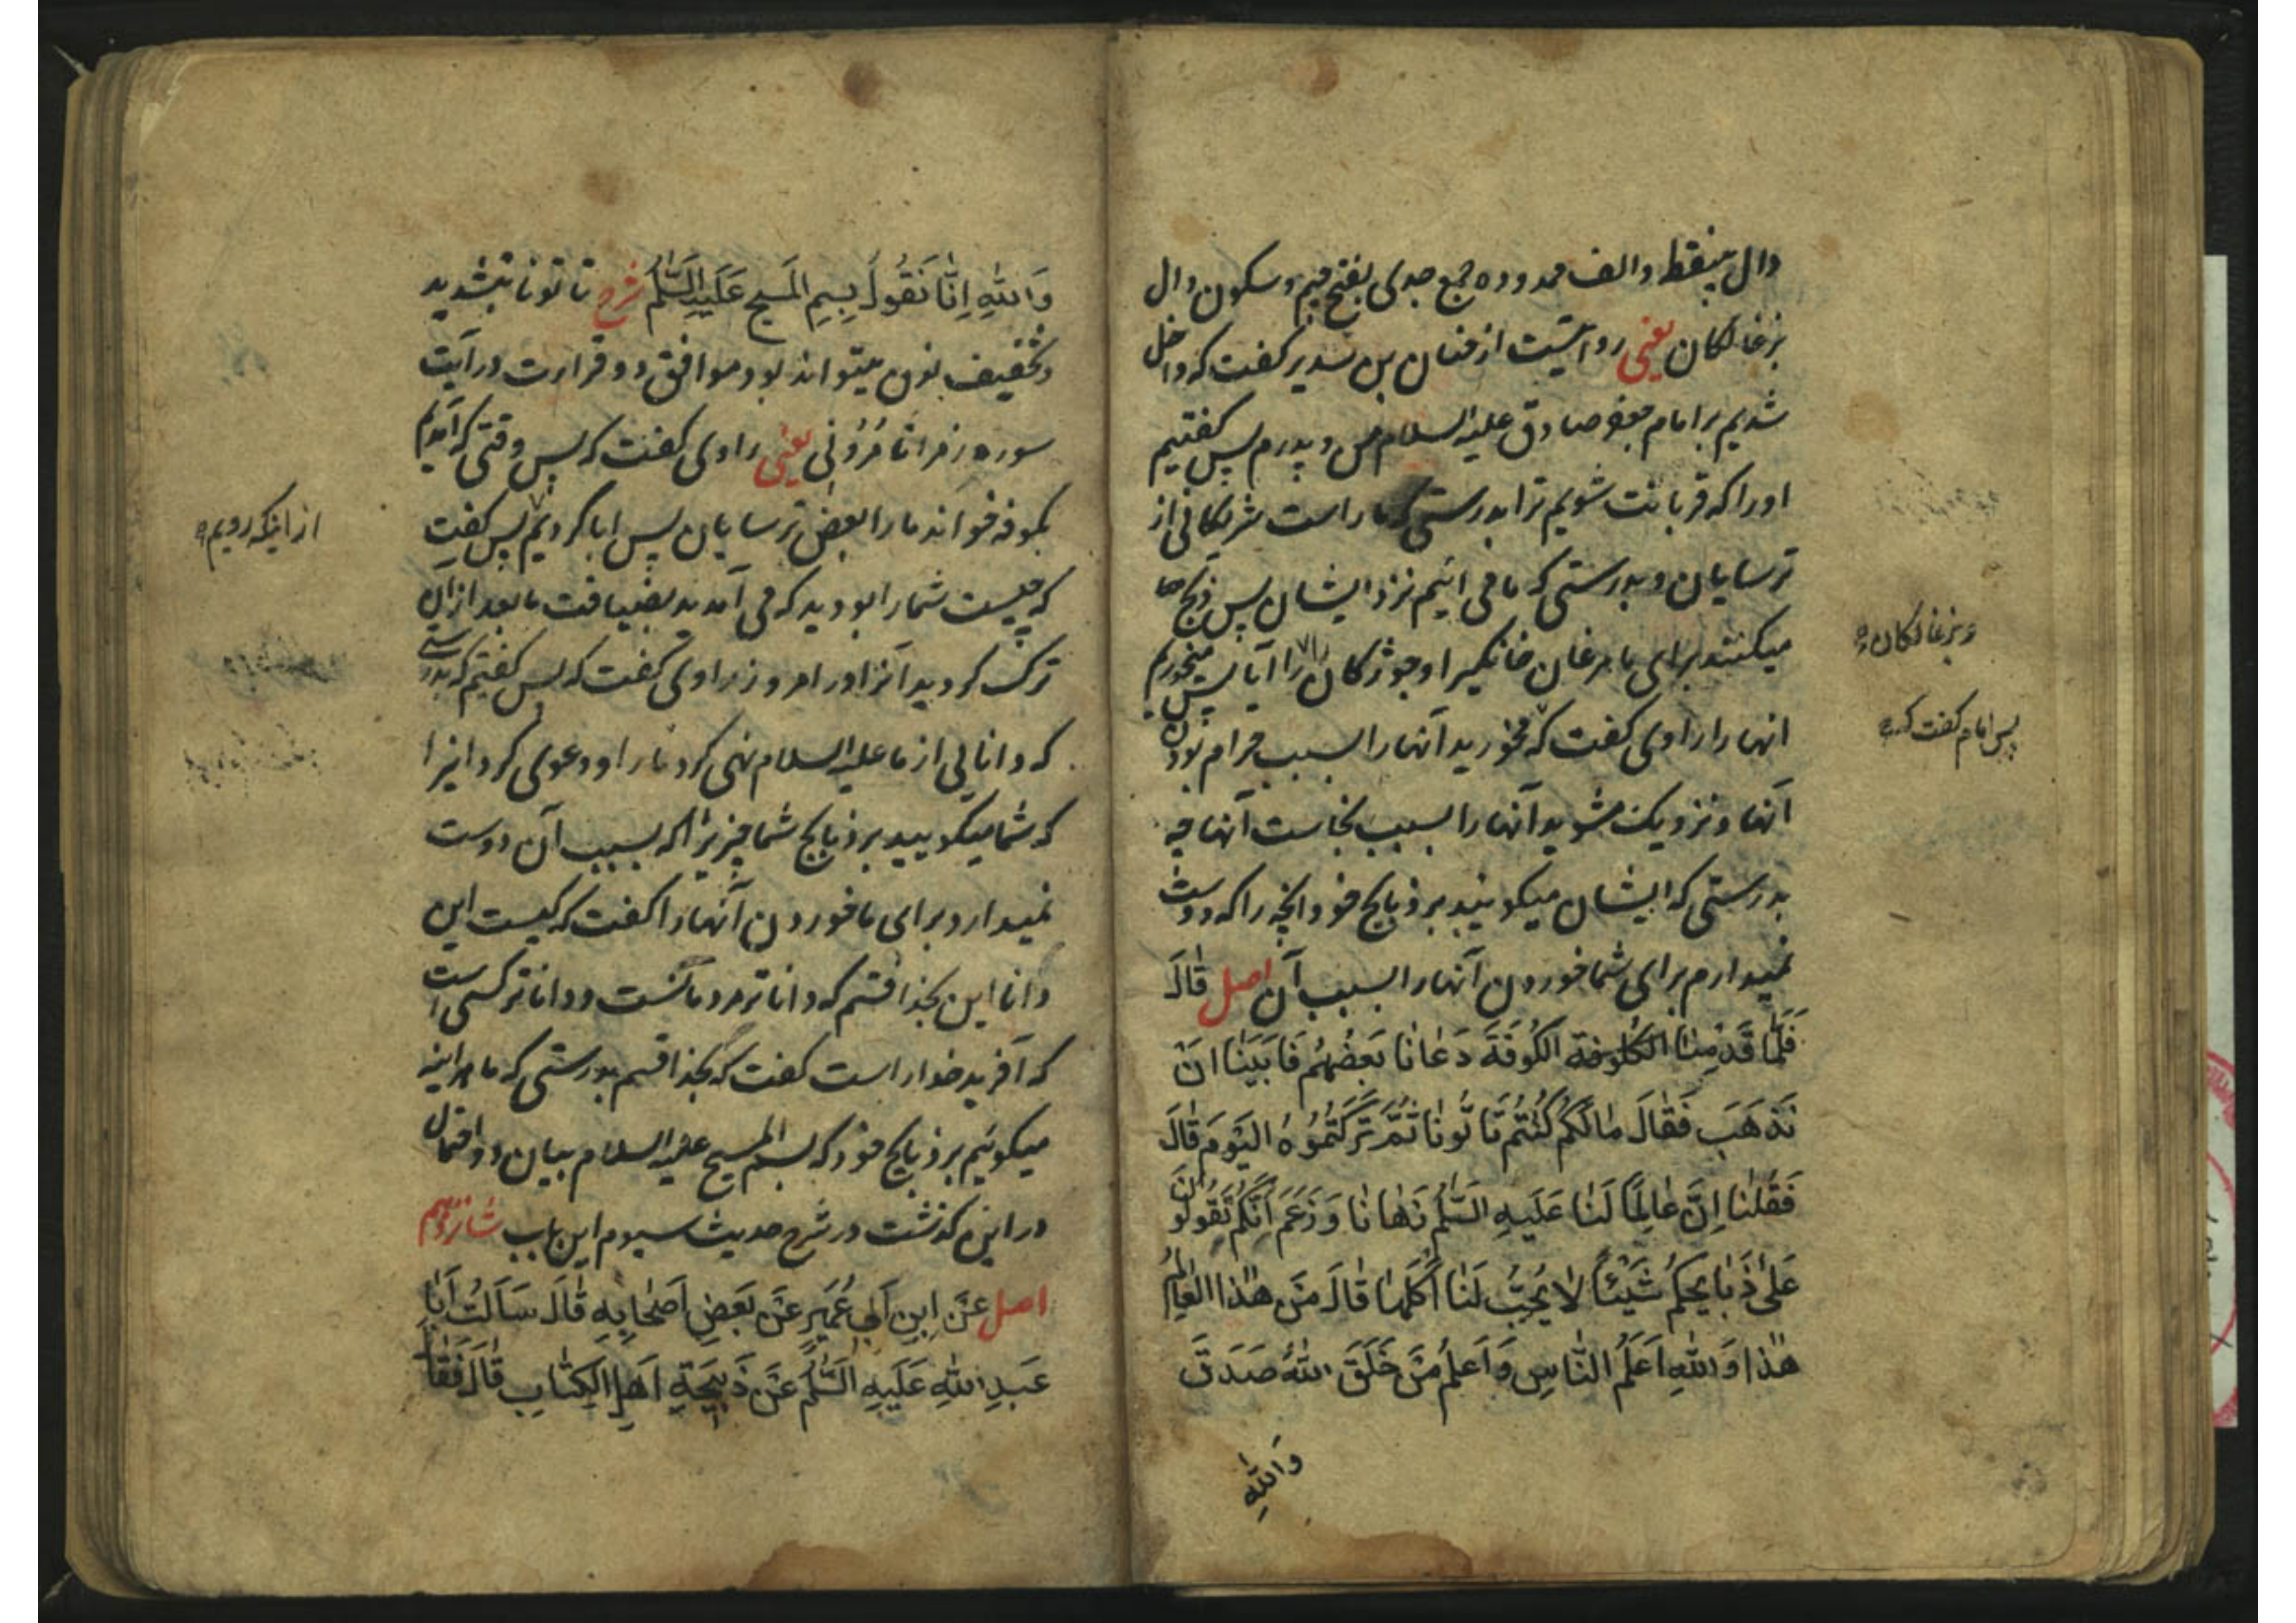 دال بینقط والف ممدوده جمع جدی بفتح جیم و سکون دال
بزغالکان یعنی روایتست از حنان بن سدیر کفت که داخل
شدیم بر امام جعفر صادق علیه السلام من و پدرم پس کفتیم
او را که قربانت شویم ترا بدرستی که ما راست شریکانی از
ترسایان و بدرستی که ما می ائیم نزد ایشان پس ذبح
میکنند برای ما مرغان خانکی را و جوژکان را ایا پس میخوریم
انها را راوی کفت که مخورید آنها را بسبب حرام بودن
آنها و نزدیک مشوید آنها را بسبب نجاست آنها چه
بدرستی که ایشان میکویند بر ذبایح خود انچه را که دوست
نمیدارم برای شما خوردن آنها را بسبب آن اصل قَالَ
فَلَمَّا قَدِمْنَا الکلوفة الْكُوفَةَ دَعَانَا بَعْضُهُمْ فَاَبَيْنَا اَنْ
نَذْهَبَ فَقَالَ مَالَكُمْ كُنْتُمْ تَاْتُونَا ثُمَّ تَرَكْتُمُوهُ الْيَوْمَ قَالَ
فَقُلْنَا اِنَّ عَالِمًا لَنَا عَلَيْهِ السَّلٰمُ نَهَانَا وَزَعَمَ اَنَّكُمْ تَقُولُونَ
عَلٰى ذَبَايِحِكُمْ شَيْئًا لَا يُحِبُّ لَنَا اَكْلَهَا قَالَ مَنْ هٰذَا الْعَالِمُ
هٰذَا وَاللّٰهِ اَعْلَمُ النَّاسِ وَاَعْلَمُ مَنْ خَلَقَ اللّٰهُ صَدَقَ
وَاللّٰهِ
و بزغالکان
پس امام کفت که
وَاللّٰهِ اِنَّا نَقُولُ بِسْمِ الْمَسِيحِ عَلَيْهِ السَّلٰمُ شرح تاتونا بتشدید
و تخفیف نون میتواند بود موافق دو قراءت در آیت
سوره زمر اتامرونی یعنی راوی کفت که پس وقتی که آمدیم
بکوفه خواند ما را بعض ترسایان پس ابا کردیم پس کفت
که چیست شما را بودید که می آمدید بضیافت ما بعد از ان
ترک کردید آنرا در امروز راوی کفت که پس کفتیم که بدرستی
که دانایی از ما علیه السلام نهی کرد ما را و دعوی کرد اینرا
که شما میکویید بر ذبایح شما چیزیرا که بسبب آن دوست
نمیدارد برای ما خوردن آنها را کفت که کیست این
دانا این بخدا قسم که داناتر مردمانست و داناتر کسی است
که آفریده خدا است کفت که بخدا قسم بدرستی که ما هراینه
میکوئیم بر ذبایح خود که بسم المسیح علیه السلام بیان دو احتمال
در این کذشت در شرح حدیث سیوم این باب شانزدهم
اصل عَنْ اِبْنِ اَبِي عُمَيْرٍ عَنْ بَعْضِ اَصْحَابِهِ قَالَ سَاَلْتُ اَبَا
عَبْدِ اللّٰهِ عَلَيْهِ السَّلٰمُ عَنْ ذَبِيحَةِ اَهْلِ الْكِتَابِ قَالَ فَقَالَ
از اینکه رویم